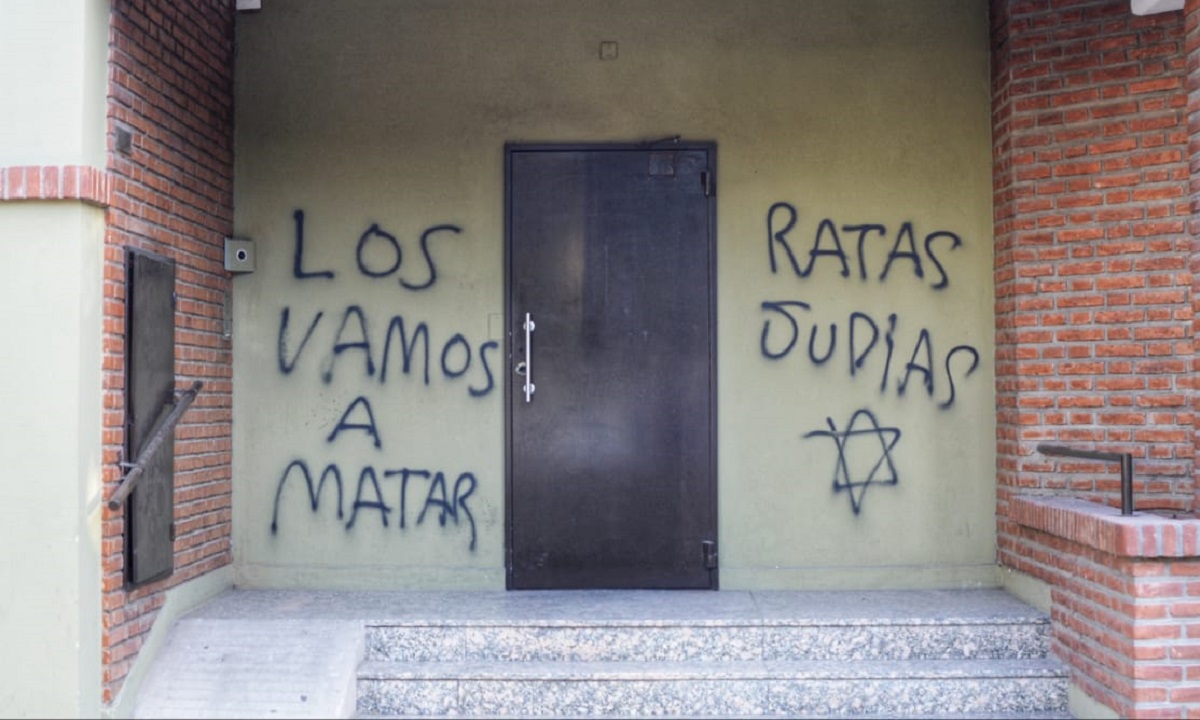 LOS
VAMOS
A
MATAR
RATAS
JUDÍAS